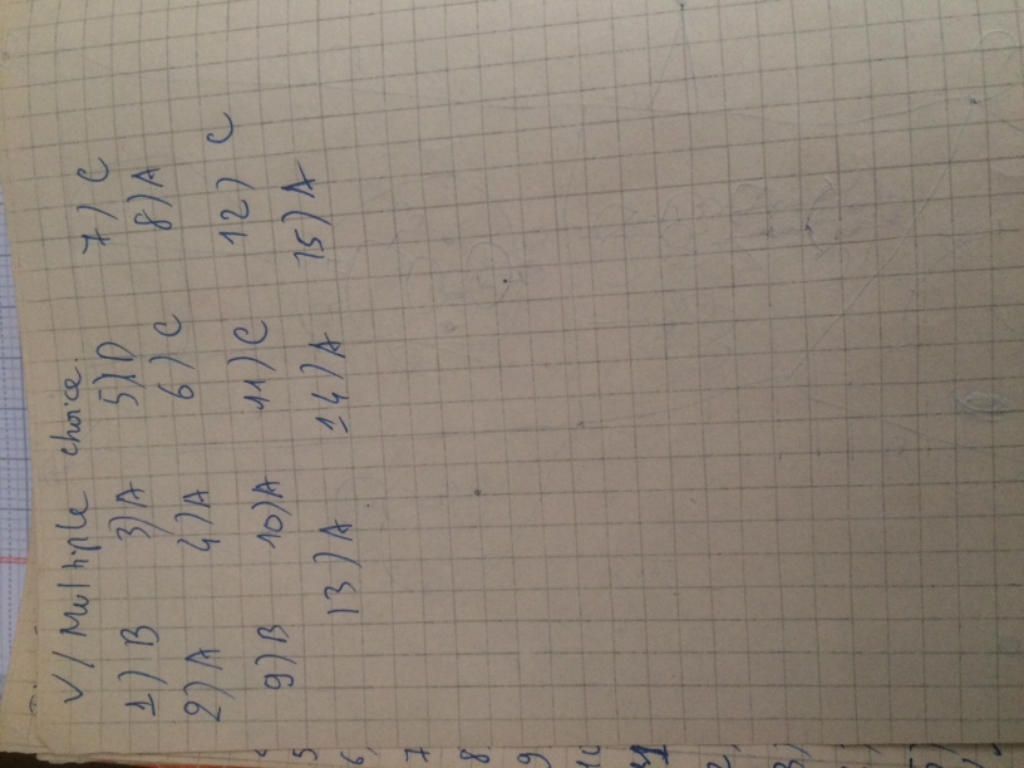 V / Multiple choice.
1) B 3) A 5) D 7) C
2) A 4) A 6) C 8) A
9) B 10) A 11) C 12) C
13) A 14) A 15) A
5
6
7
8
9
10
11
2
3